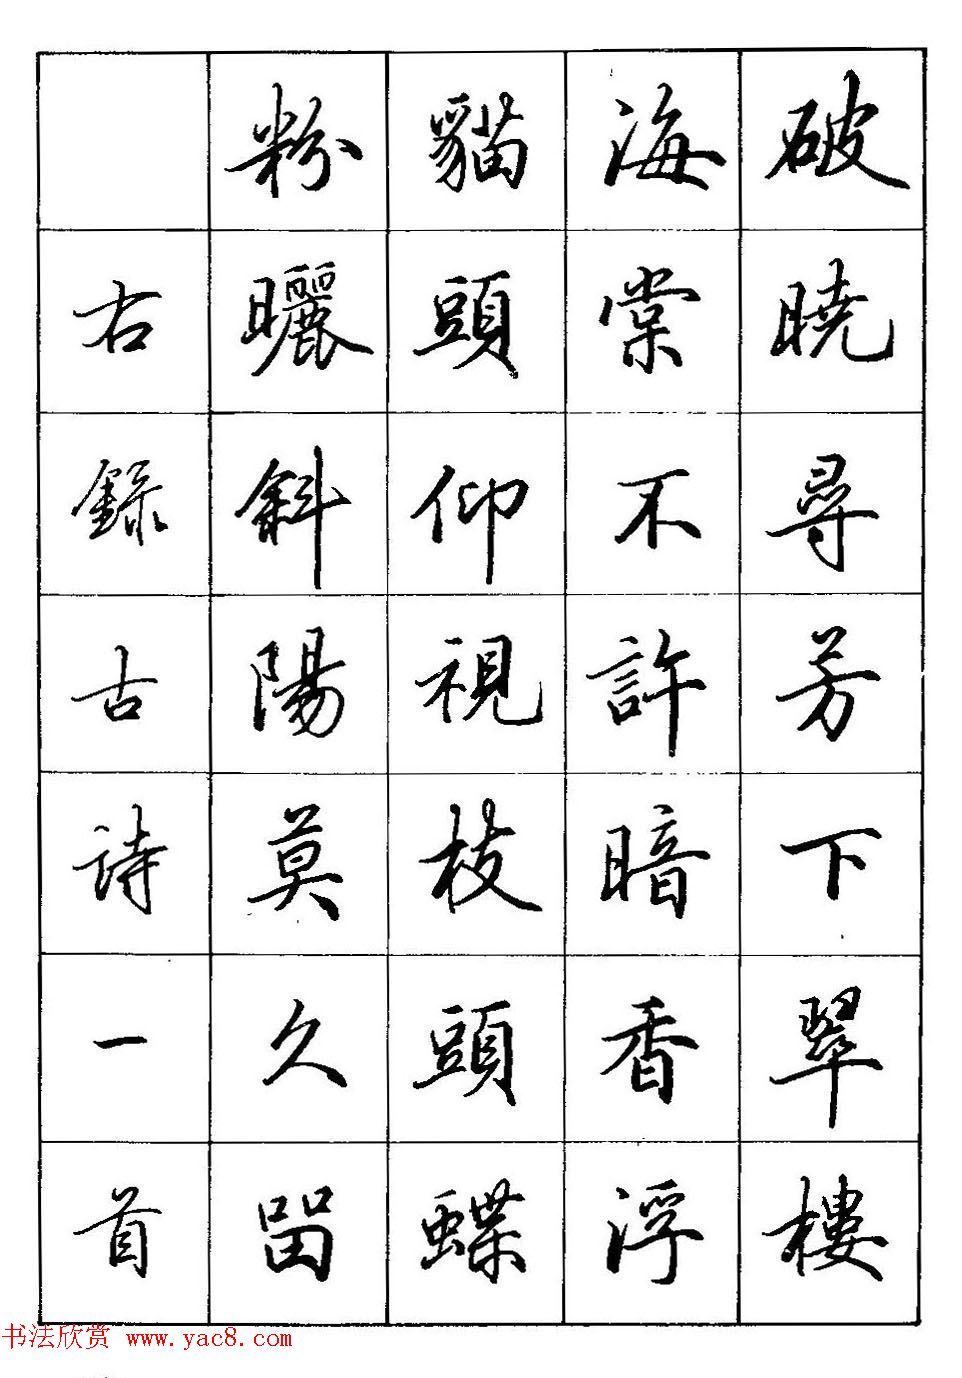 破曉尋芳下翠樓
海棠不許暗香浮
貓頭仰視枝頭蝶
粉曬斜陽莫久留
右錄古詩一首
书法欣赏 www.yac8.com